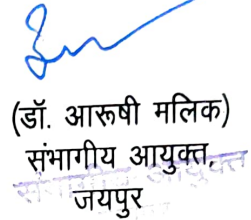 (डॉ. आरूषी मलिक)
संभागीय आयुक्त,
जयपुर